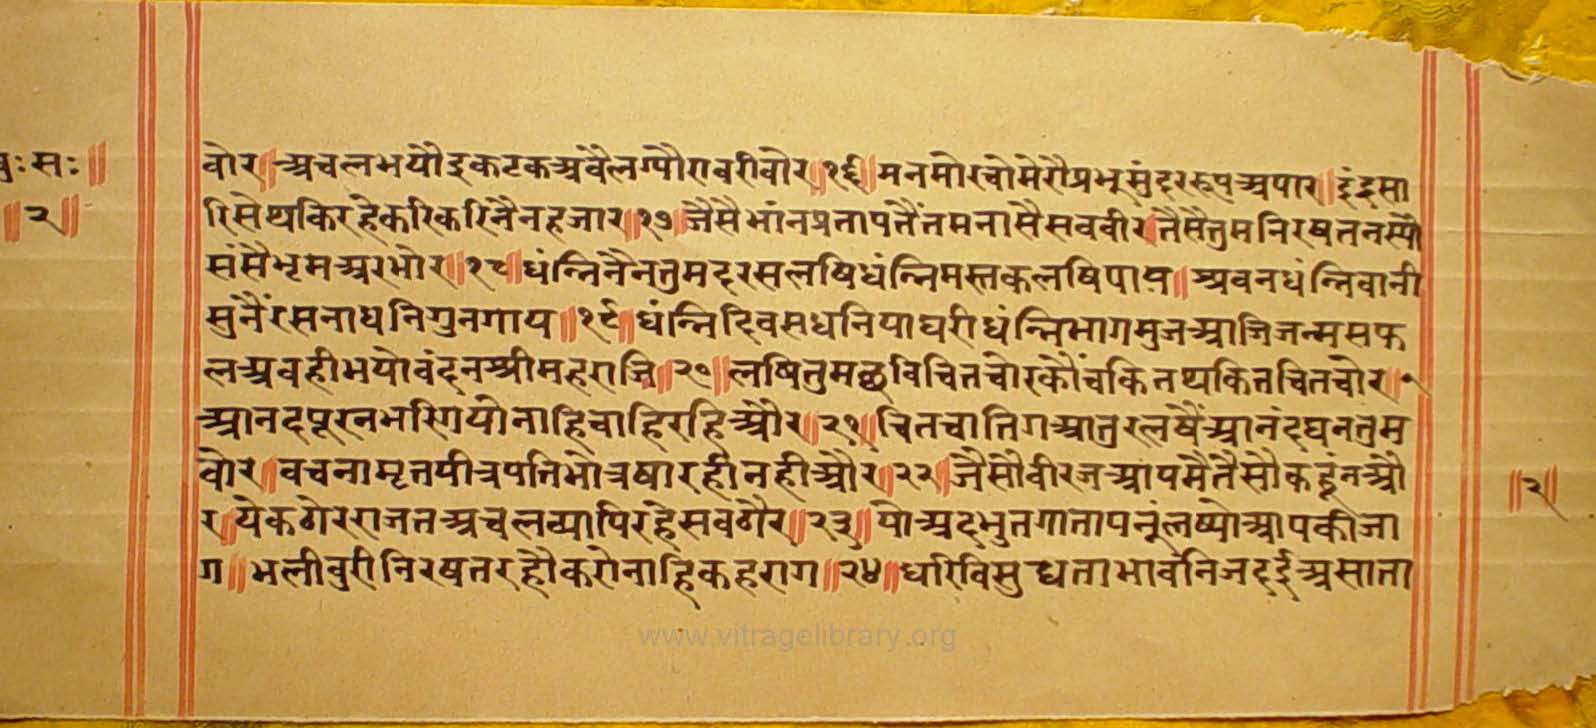 बुः सः॥
॥२॥
वोर॥अचलभयौइकटकअवैलग्पौरावरीवोर॥१६॥मनमोरवोमेरौप्रभूसुंदररुपुअपार॥इंद्रसा
रिसेथकिरहेकरिकरिनैनहजार॥१७॥जैसैभांनप्रतापतैंतमनासैसववीर॥तैसैंतुमनिरषतनस्पौ
संसैभृमअरभोर॥१८॥धंन्निनैनतुमदरसलषिधंन्निमस्तकलषिपाय॥श्रवनधंन्निवानी
सुनैंरसनाधनिगुनगाय॥१९॥धंन्निदिवसधनियाघरीधंन्निभागमुजआजिजन्मसफ
लअवहीभयोवंदनश्रीमहराजि॥२०॥लषितुमछविचितचोरकौंचकितथकितचितचोर॥
आनदपूरनभरिगयोनाहिचाहिरहिऔर॥२१॥चितचातिगआतुरलषैंआनंदघनतुम
वोर॥वचनामृतपीत्रपतिभौत्रषारहीनहीऔर॥२२॥जैसौवीरजआपमैतैसौकहूंनऔ
र॥येकठौरराजतअचलव्यापिरहेसवठौर॥२३॥योअदभुतगातापनूंलष्योआपकीजा
ग॥भलीवुरीनिरषतरहौकरोनाहिकहराग॥२४॥धरिविसुद्धताभावनिजदईअसाता
॥२॥
www.vitragelibrary.org